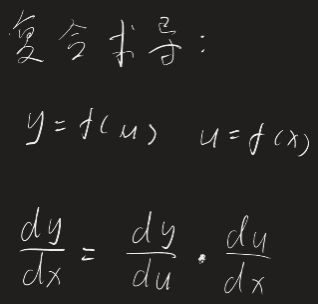 复合求导:
y=f(u) u=f(x)
dy/dx = dy/du · du/dx